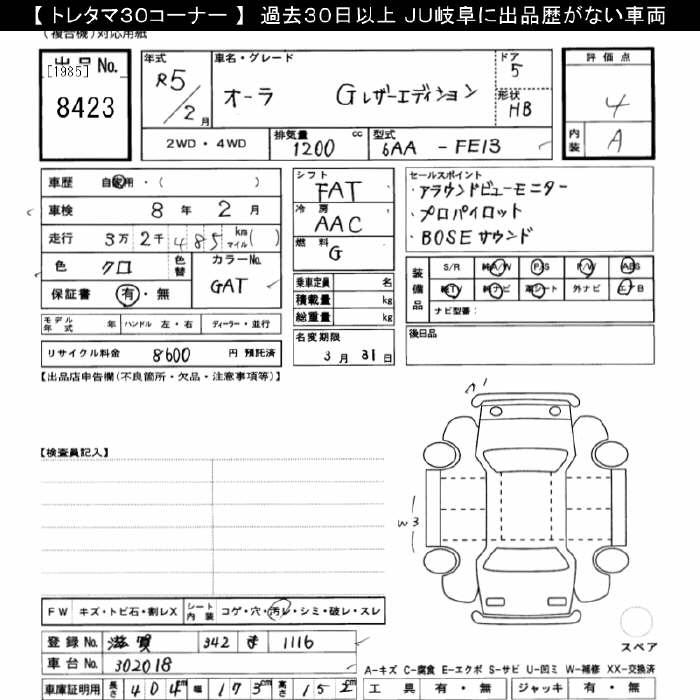 【 トレタマ30コーナー 】 過去30日以上 JU岐阜に出品歴がない車両
(複合機)対応用紙
出品No.
[1985]
8423
年式
R5/2月
車名・グレード
オーラ Gレザーエディション
ドア
5
形状
HB
2WD・4WD
排気量 1200 cc
型式 6AA - FE13
評価点
4
内装 A
車歴 自家用・( )
車検 8年 2月
走行 3万 2千 485 km マイル( )
色 クロ
色替
カラーNo. GAT
保証書 有・無
モデル年式 年 ハンドル 左・右 ディーラー・並行
リサイクル料金 8600 円 預託済
シフト FAT
冷房 AAC
燃料 G
乗車定員 名
積載量 kg
総重量 kg
名変期限
3月31日
セールスポイント
・アラウンドビューモニター
・プロパイロット
・BOSEサウンド
装備品
S/R 純A/W P/S P/W ABS
純TV 純ナビ 革シート 外ナビ エアB
ナビ型番:
後日品
【出品店申告欄(不良箇所・欠品・注意事項等)】
【検査員記入】
A1
W3
スペア
FW キズ・トビ石・割レX シート内装 コゲ・穴・汚レ・シミ・破レ・スレ
登録No. 滋賀 342 ま 1116
車台No. 302018
車庫証明用 長さ 404cm 幅 173cm 高さ 152cm
A-キズ C-腐食 E-エクボ S-サビ U-凹ミ W-補修 XX-交換済
工具 有・無 ジャッキ 有・無